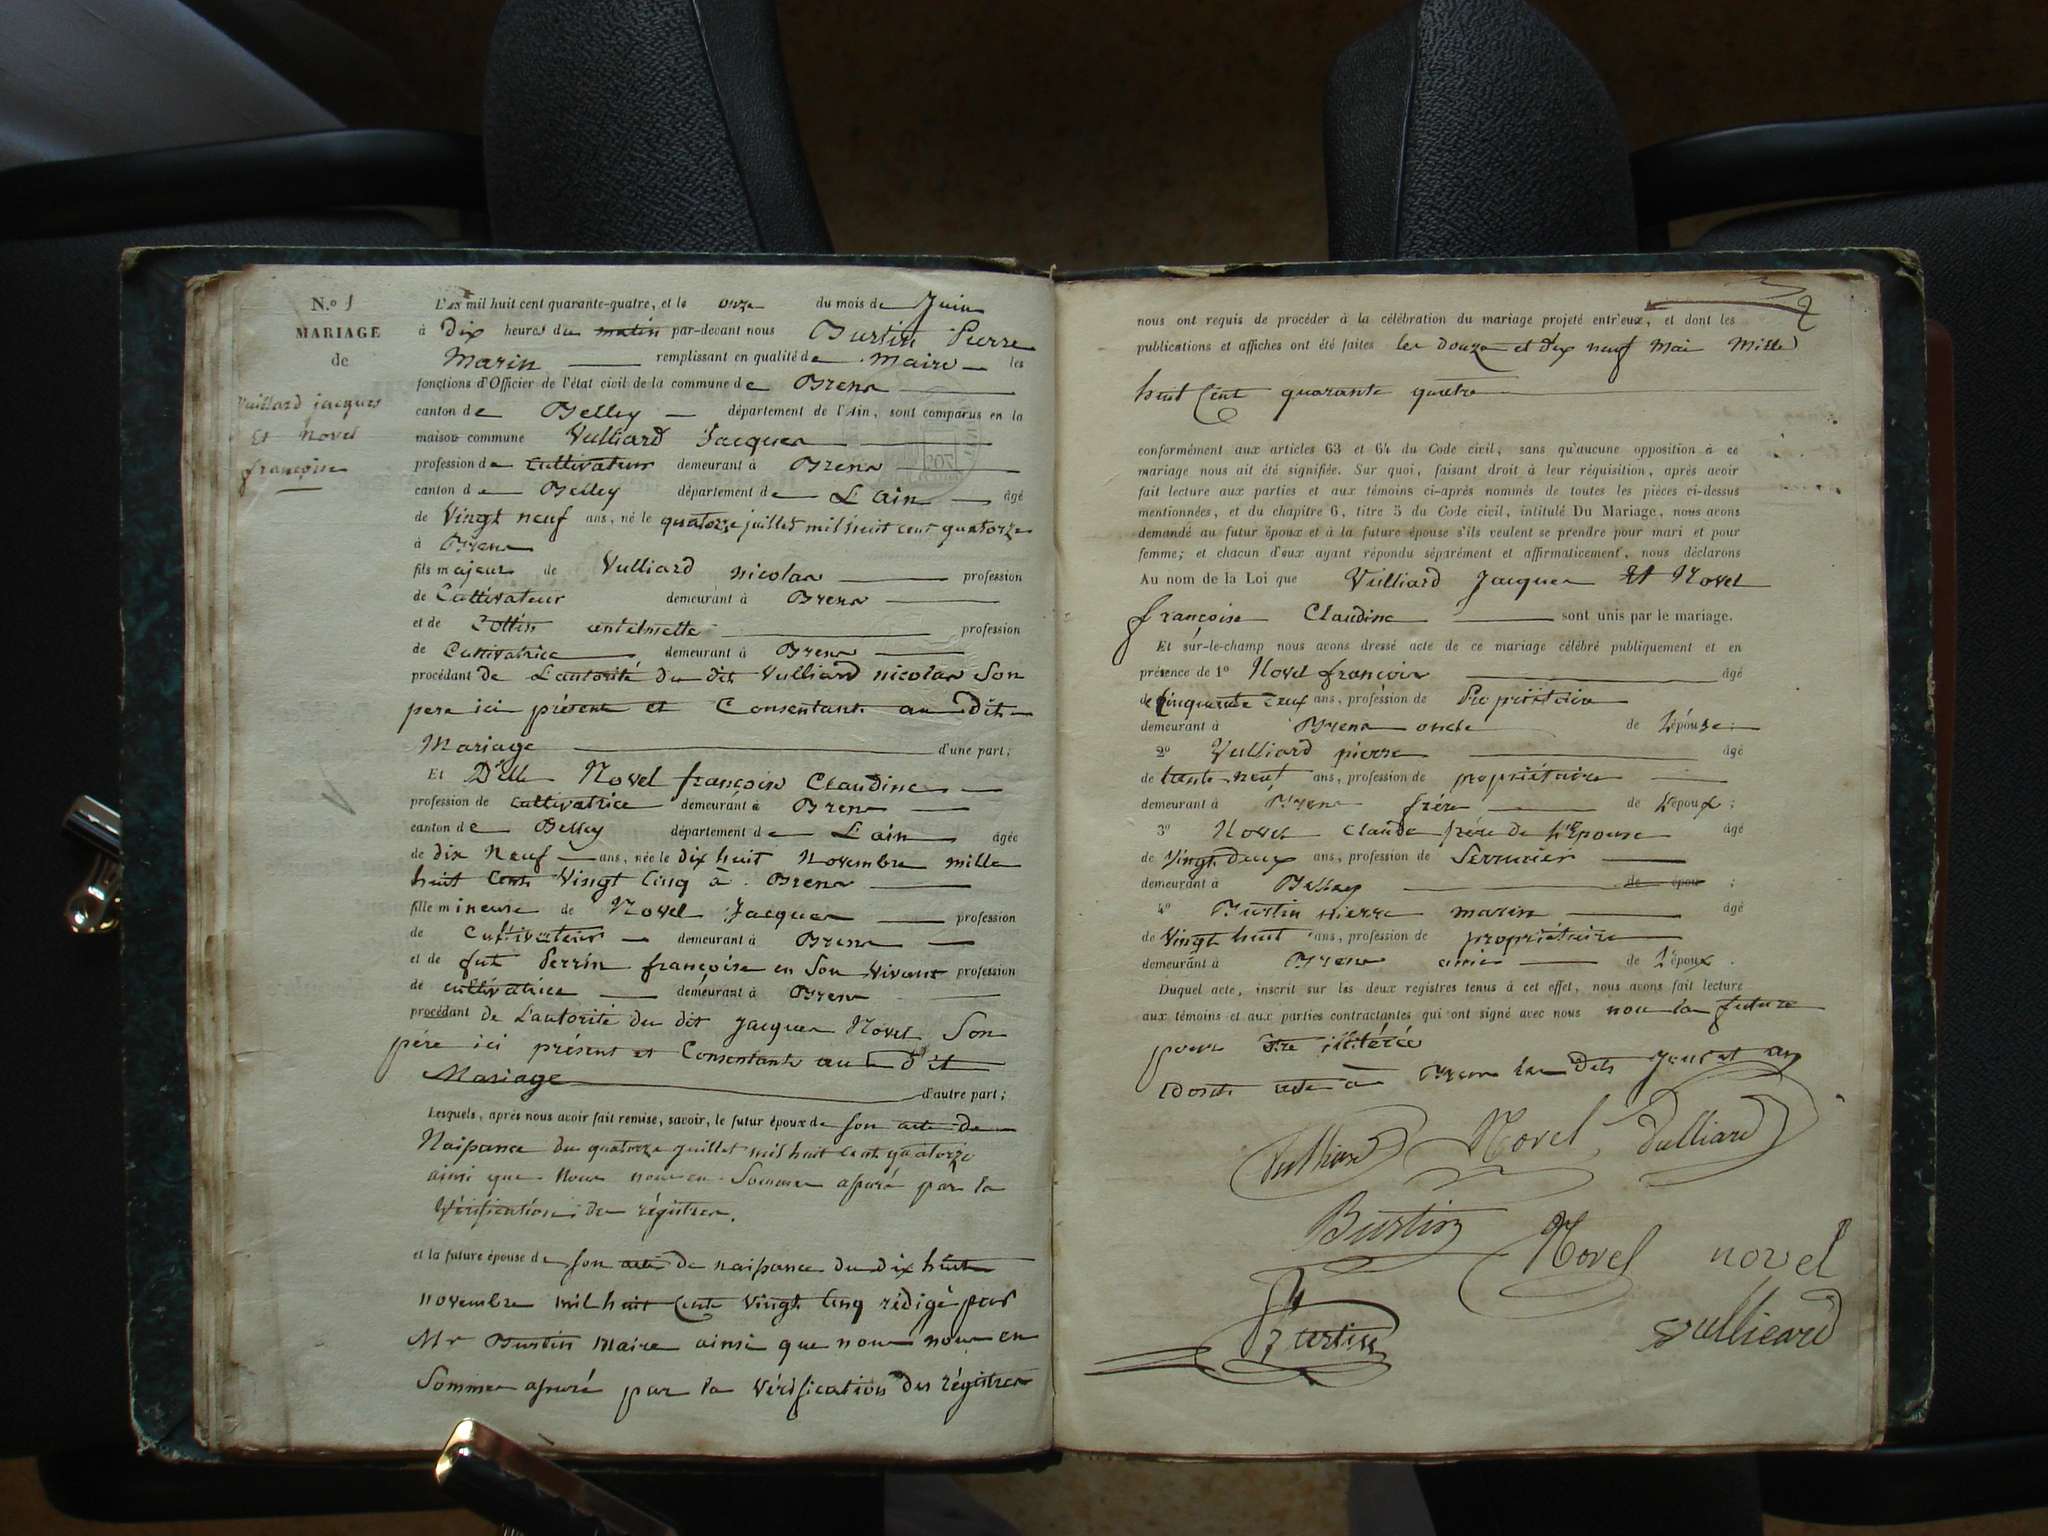 N.o 1
MARIAGE
de
Vuillard jacques
Et Novel
françoise
L'AN mil huit cent quarante-quatre, et le onze du mois de Juin
à Dix heures du matin par-devant nous Burtin Pierre
Marin remplissant en qualité de Maire les
fonctions d'Officier de l'état civil de la commune de Brens
canton de Belley département de l'Ain, sont comparus en la
maison commune Vulliard Jacques
profession de Cultivateur demeurant à Brens
canton de Belley département de L'ain âgé
de Vingt neuf ans, né le quatorze juillet mil huit cent quatorze
à Brens
fils majeur de Vulliard nicolas profession
de Cultivateur demeurant à Brens
et de Collin antelmette profession
de Cultivatrice demeurant à Brens
procédant de L'autorité du dit Vulliard nicolas Son
pere ici présent et Consentant au dit
Mariage d'une part;
Et Delle Novel françoise Claudine
profession de cultivatrice demeurant à Brens
canton de Belley département de L'ain âgée
de dix Neuf ans, née le dix huit Novembre mille
huit Cent Vingt Cinq à Brens
fille mineure de Novel Jacques profession
de Cultivateur demeurant à Brens
et de fut Perrin françoise en Son Vivant profession
de cultivatrice demeurant à Brens
procédant de L'autorité du dit Jacques Novel Son
père ici présent et Consentant au Dit
Mariage d'autre part;
Lesquels, après nous avoir fait remise, savoir, le futur époux de son acte de
Naissance du quatorze juillet mil huit Cent quatorze
ainsi que Nous nous en Sommes assuré par la
Vérification des régistres.
et la future épouse de son acte de naissance du dix huit
novembre mil huit Cent Vingt Cinq rédigé par
Mr Burtin Maire ainsi que nous nous en
Sommes assuré par la Vérification des régistres
2
nous ont requis de procéder à la célébration du mariage projeté entr'eux, et dont les
publications et affiches ont été faites les douze et dix neuf Mai Mille
huit Cent quarante quatre
conformément aux articles 63 et 64 du Code civil, sans qu'aucune opposition à ce
mariage nous ait été signifiée. Sur quoi, faisant droit à leur réquisition, après avoir
fait lecture aux parties et aux témoins ci-après nommés de toutes les pièces ci-dessus
mentionnées, et du chapitre 6, titre 5 du Code civil, intitulé Du Mariage, nous avons
demandé au futur époux et à la future épouse s'ils veulent se prendre pour mari et pour
femme; et chacun d'eux ayant répondu séparément et affirmativement, nous déclarons
Au nom de la Loi que Vulliard Jacques Et Novel
françoise Claudine sont unis par le mariage.
Et sur-le-champ nous avons dressé acte de ce mariage célébré publiquement et en
présence de 1o Novel françois âgé
de Cinquante deux ans, profession de Propriétaire
demeurant à Brens oncle de L'épouse
2o Vulliard pierre âgé
de trente neuf ans, profession de propriétaire
demeurant à Brens frère de L'époux;
3o Novel Claude frère de L'Epouse âgé
de Vingt deux ans, profession de Serrurier
demeurant à Belley de épou ;
4o Burtin pierre marin âgé
de Vingt huit ans, profession de propriétaire
demeurant à Brens amie de L'époux.
Duquel acte, inscrit sur les deux registres tenus à cet effet, nous avons fait lecture
aux témoins et aux parties contractantes qui ont signé avec nous non la future
pour être illitérée
Dont acte à Brens les Dits Jour et an
Vulliard Novel Vulliard
Burtin Novel novel
Burtin vullieard